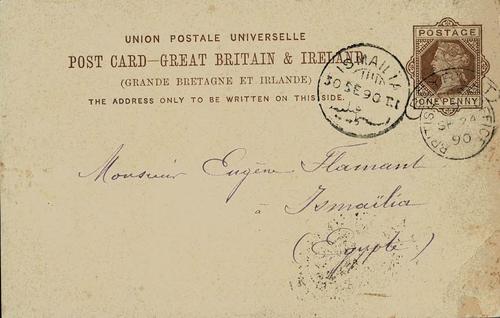 UNION POSTALE UNIVERSELLE
POST CARD—GREAT BRITAIN & IRELAND
(GRANDE BRETAGNE ET IRLANDE)
THE ADDRESS ONLY TO BE WRITTEN ON THIS SIDE.
POSTAGE
ONE PENNY
ISMAILIA
30 SE 90
SP 24
90
Monsieur Eugène Flamant
à Ismaïlia
(Egypte)